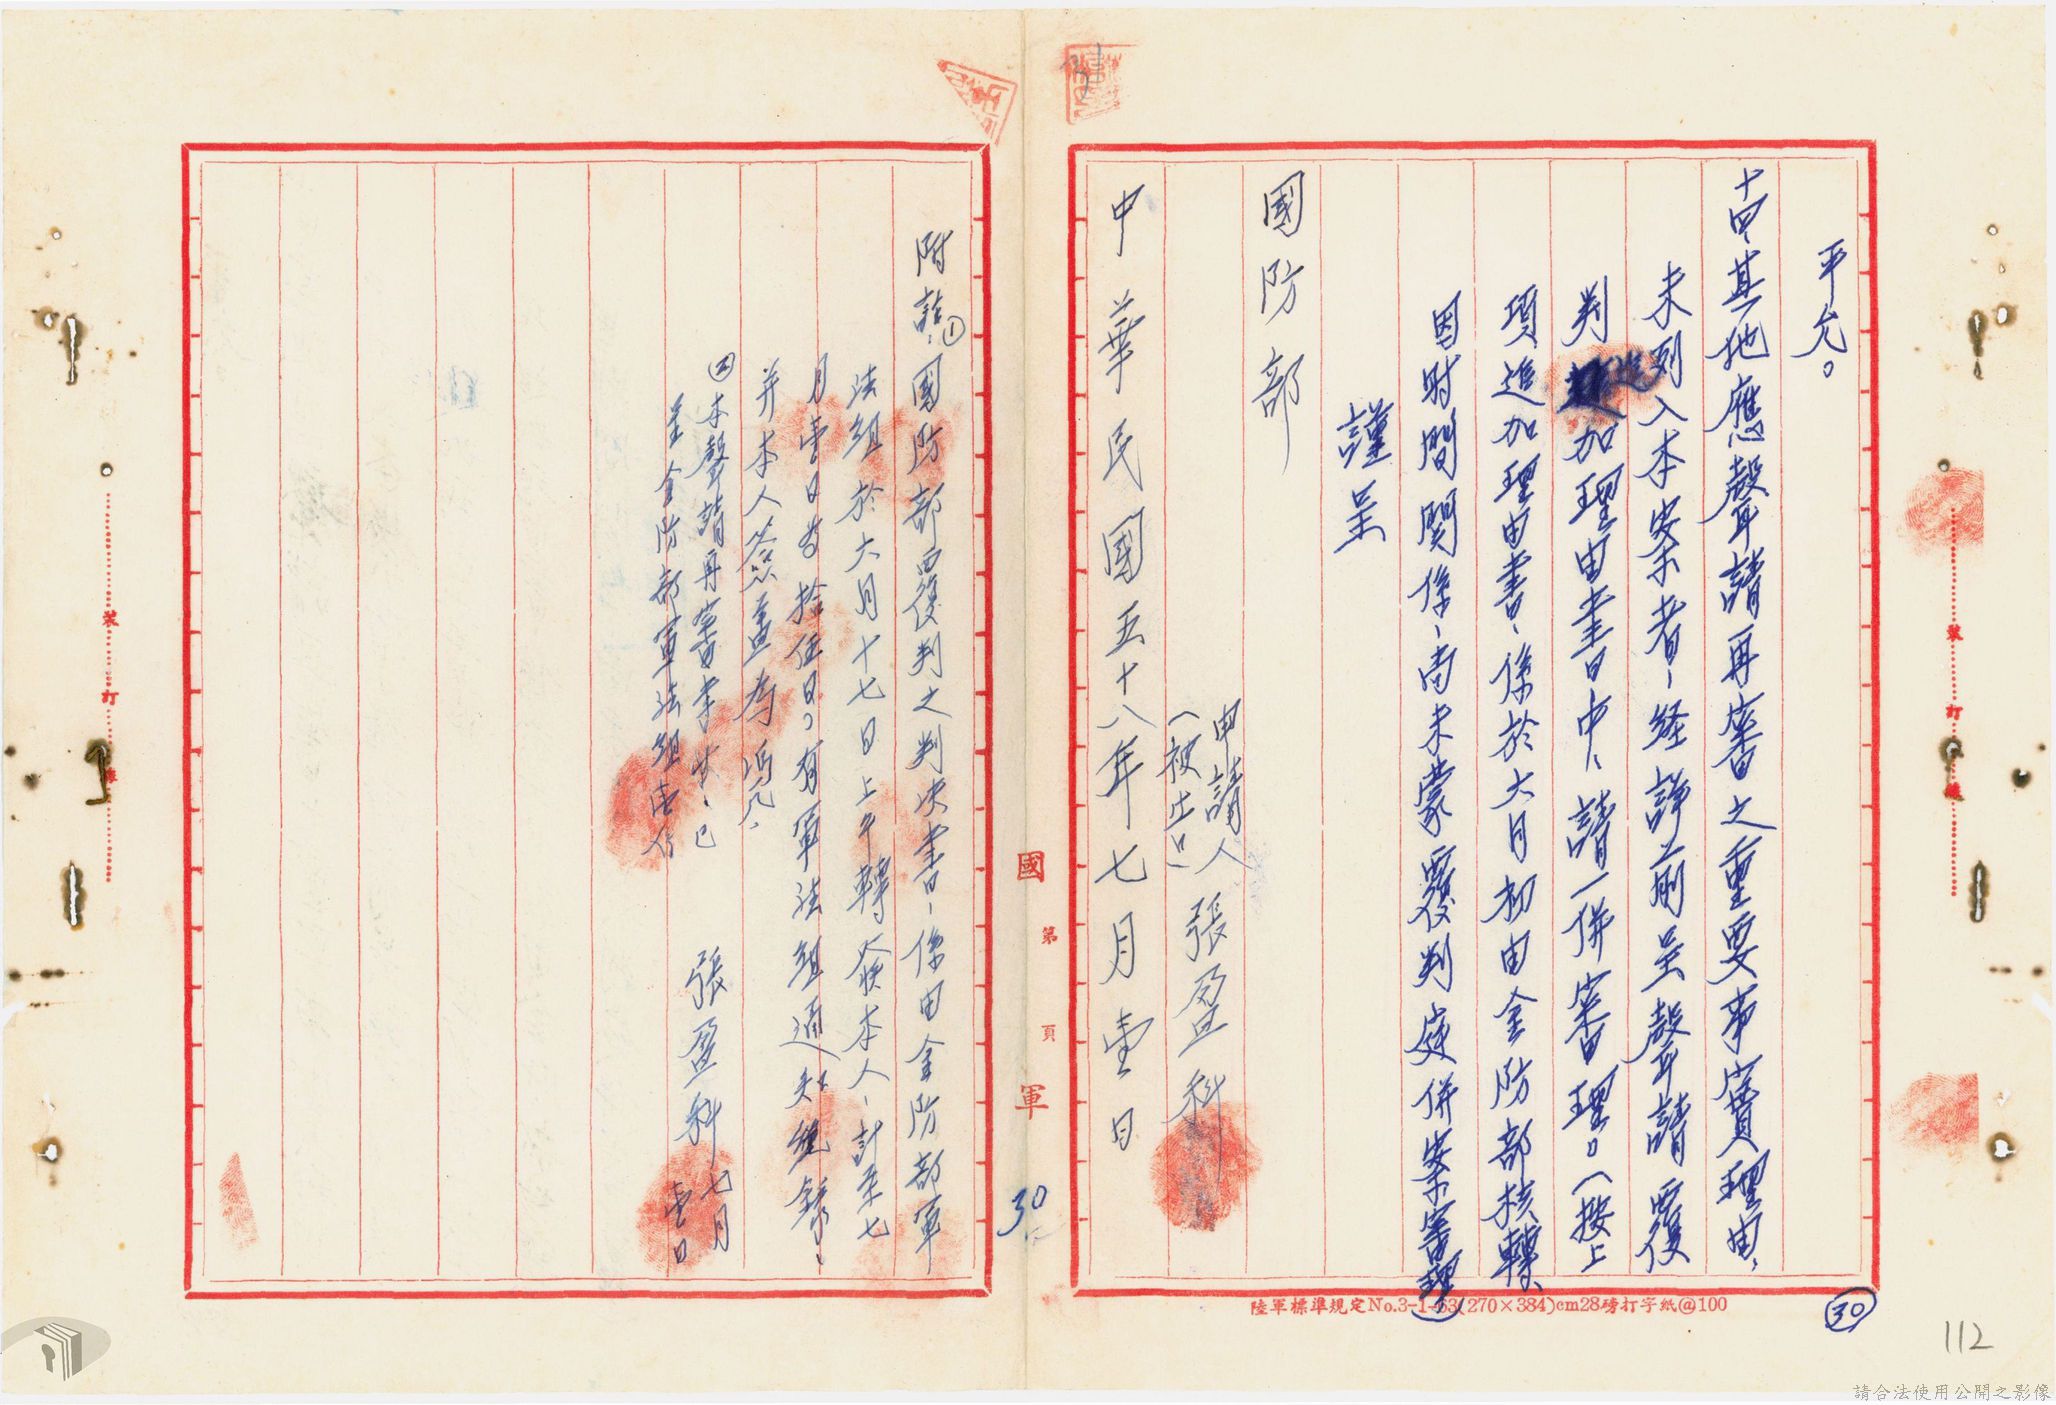 平允。
十四、其他應聲請再審之重要事實理由、
未列入本案者、經詳前呈聲請覆
判追加理由書中、請一併審理。(按上
項追加理由書、係於六月初由金防部核轉、
因時間關係、尚未蒙覆判庭併案審理)
謹呈
國防部
申請人 張盈科
(被告)
中華民國五十八年七月壹日
陸軍標準規定No.3-1-63(270×384)cm28磅打字紙@100
30
112
裝 訂 線
國 軍
第 頁
30
附註:①國防部覆判之判決書、係由金防部軍
法組於六月十七日上午轉發本人、計至七
月壹日為拾伍日、有軍法組通知紀錄、
并本人簽蓋為憑、
②本聲請再審書狀、已
呈金防部軍法組壹份
張盈科 七月
壹日
裝 訂 線
請合法使用公開之影像